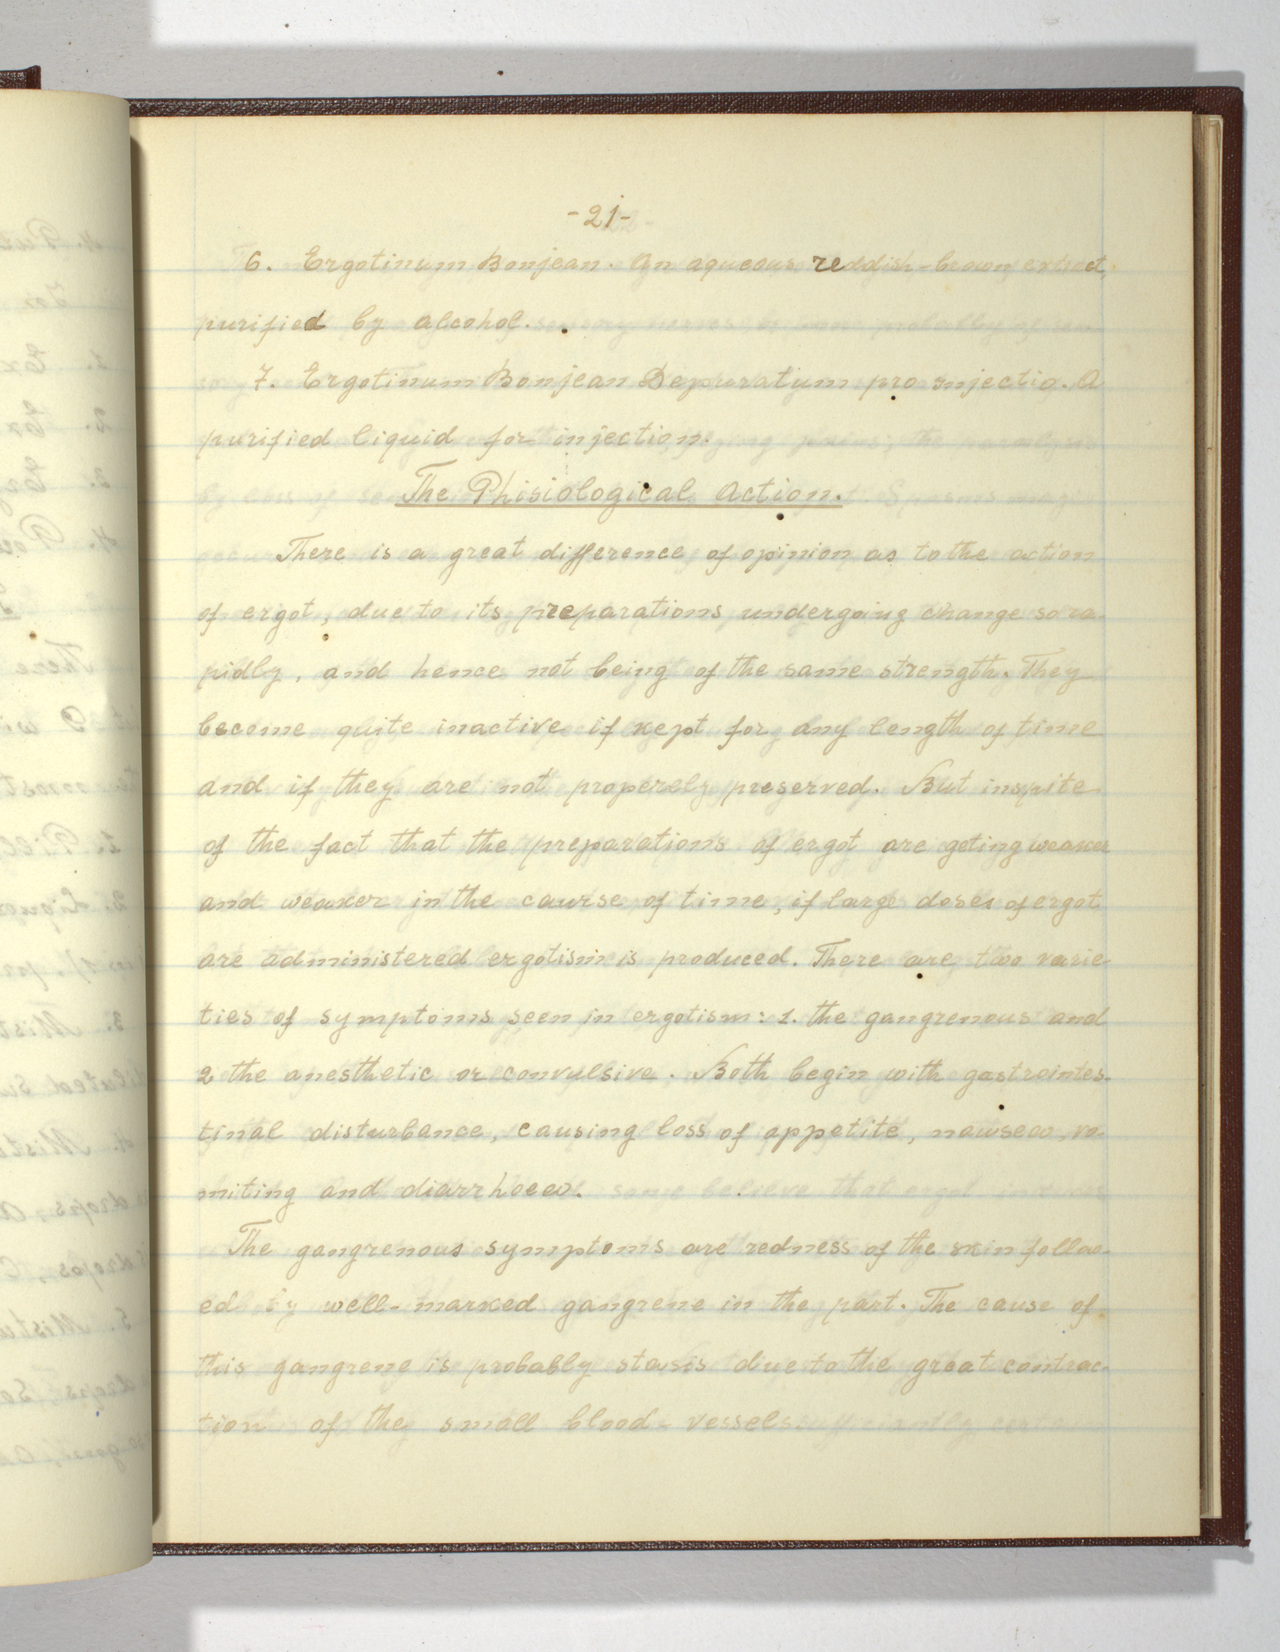 -21-
6. Ergotinum Bonjean. An aqueous reddish-brown extract,
purified by alcohol.
7. Ergotinum Bonjean Depuratum pro injectio. A
purified liquid for injection.
The Phisiological Action.
There is a great difference of opinion as to the action
of ergot, due to its preparations undergoing change so ra-
pidly, and hence not being of the same strength. They
become quite inactive if kept for any length of time
and if they are not properely preserved. But inspite
of the fact that the preparations of ergot are geting weaker
and weaker in the caurse of time, if large doses of ergot
are administered ergotism is produced. There are two varie-
ties of symptoms seen in ergotism: 1. the gangrenous and
2 the anesthetic or convulsive. Both begin with gastrointes-
tinal disturbance, causing loss of appetite, nawsea, vo-
miting and diarrhoea.
The gangrenous symptoms are redness of the skin follow-
ed by well-marked gangrene in the part. The cause of
this gangrene is probably stasis due to the great contrac-
tion of the small blood-vessels.